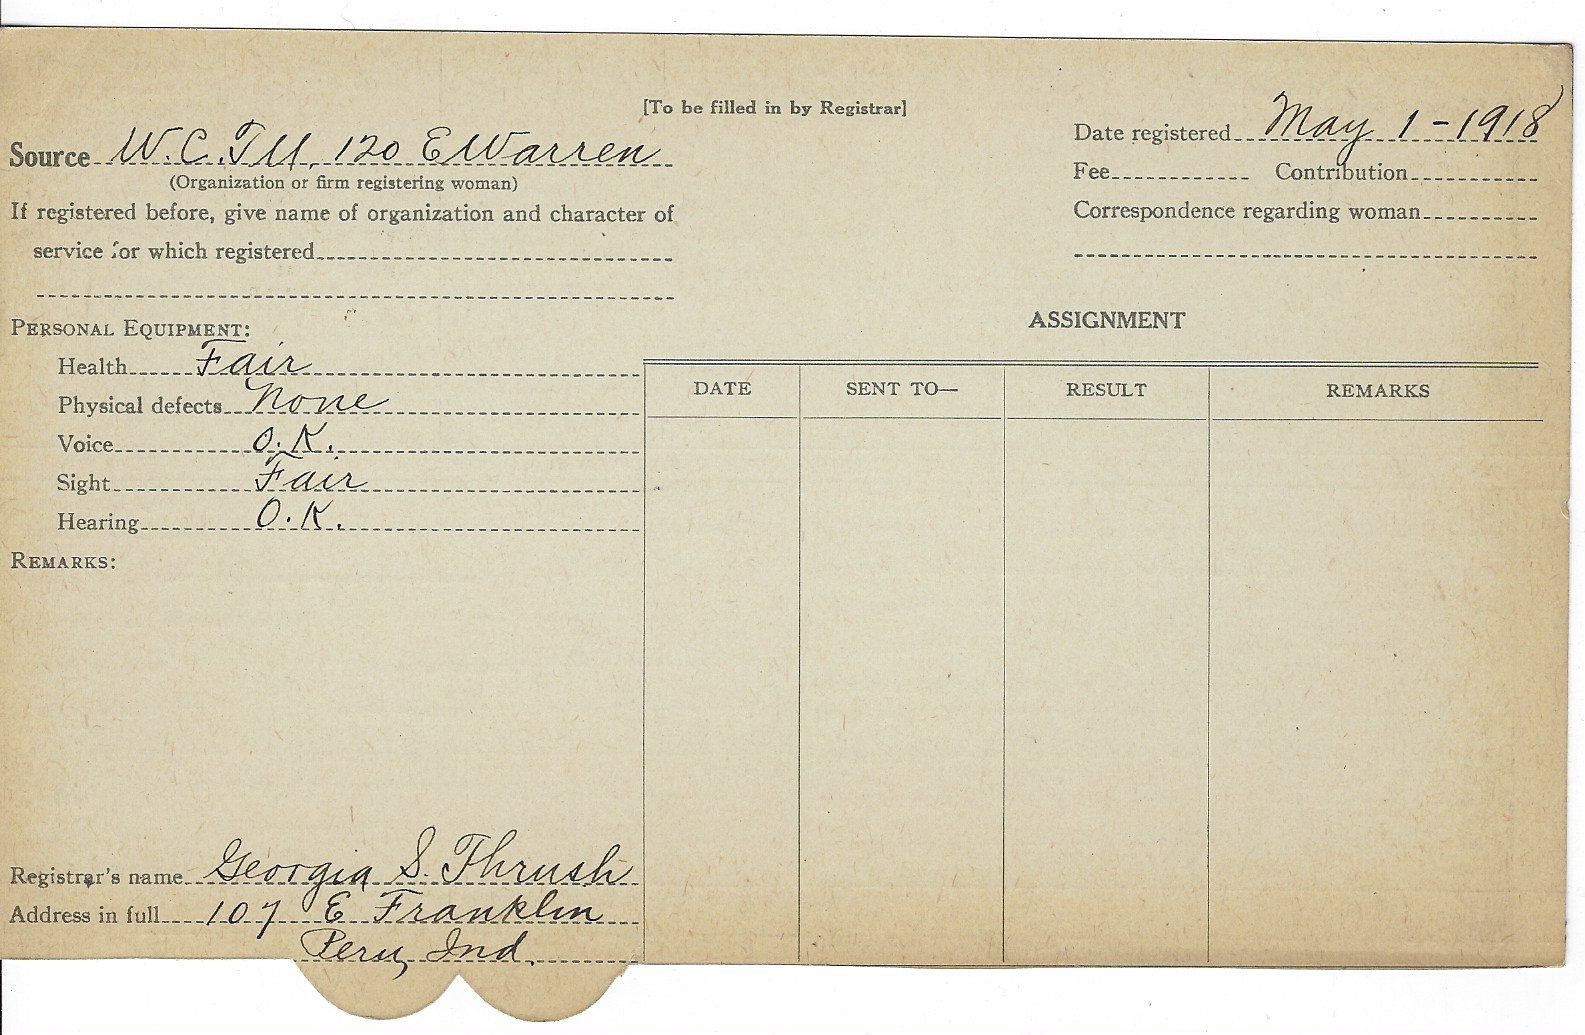 [To be filled in by Registrar]
Source W.C.T.U. 120 E Warren
(Organization or firm registering woman)
If registered before, give name of organization and character of
service for which registered
Date registered May 1-1918
Fee Contribution
Correspondence regarding woman
PERSONAL EQUIPMENT:
Health Fair
Physical defects None
Voice O.K.
Sight Fair
Hearing O.K.
REMARKS:
ASSIGNMENT
DATE SENT TO— RESULT REMARKS
Registrar's name Georgia S. Thrush
Address in full 107 E Franklin
Peru, Ind.